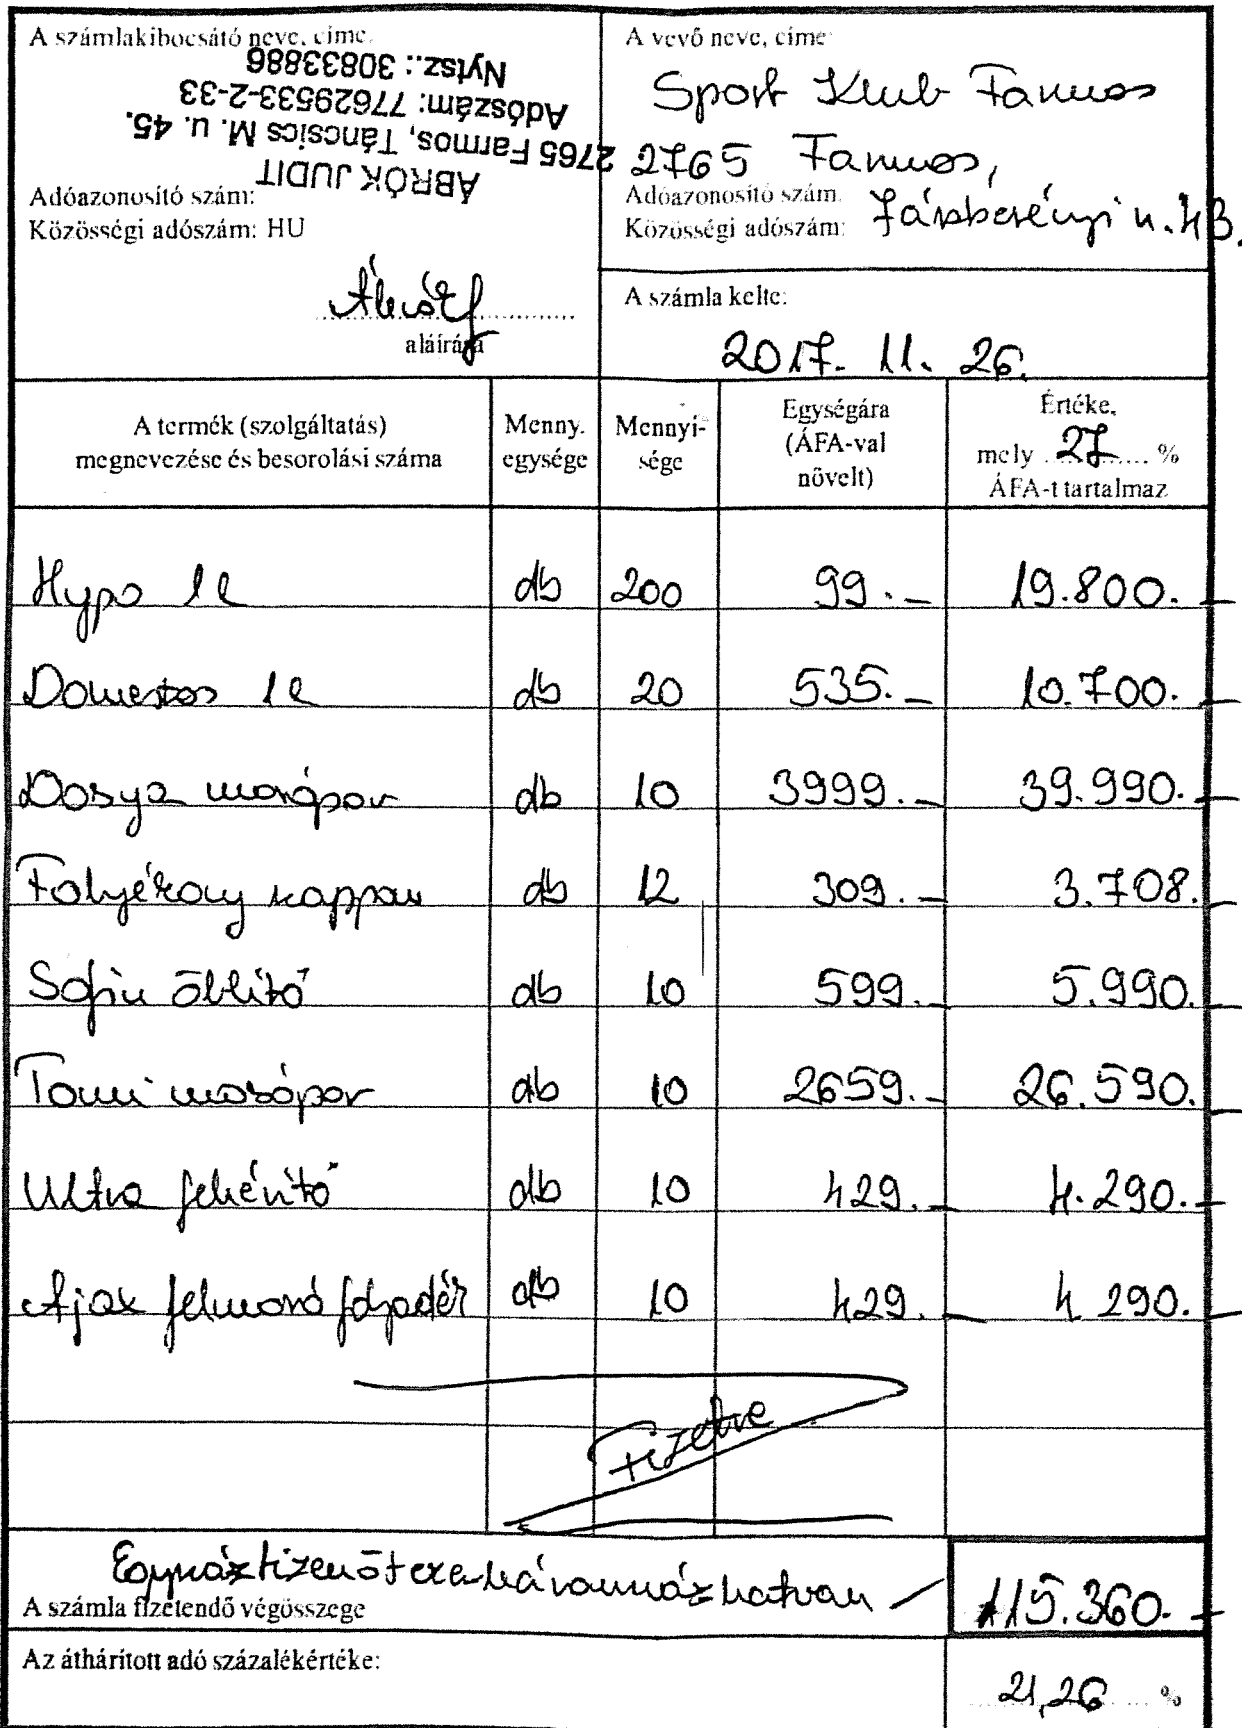 A számlakibocsátó neve, címe:
Nytsz.: 30833886
Adószám: 77629533-2-33
2765 Farmos, Táncsics M. u. 45.
ÁBRÓK JUDIT
Adóazonosító szám:
Közösségi adószám: HU
aláírása
A vevő neve, címe
Sport Klub Farmos
2765 Farmos,
Adóazonosító szám:
Közösségi adószám: Jászberényi u. 43.
A számla kelte:
2017. 11. 26.
A termék (szolgáltatás) megnevezése és besorolási száma
Menny. egysége
Mennyisége
Egységára (ÁFA-val növelt)
Értéke, mely 27 % ÁFA-t tartalmaz
Hypo 1l db 200 99.- 19.800.-
Domestos 1l db 20 535.- 10.700.-
Dosya mosópor db 10 3999.- 39.990.-
Folyékony szappan db 12 309.- 3.708.-
Sofin öblítő db 10 599.- 5.990.-
Tomi mosópor db 10 2659.- 26.590.-
Ultra fehérítő db 10 429.- 4.290.-
Ajax felmosó folyadék db 10 429.- 4 290.-
Fizetve
Egyszáztizenötezer-háromszázhatvan
A számla fizetendő végösszege 115.360.-
Az áthárított adó százalékértéke: 21,26 %